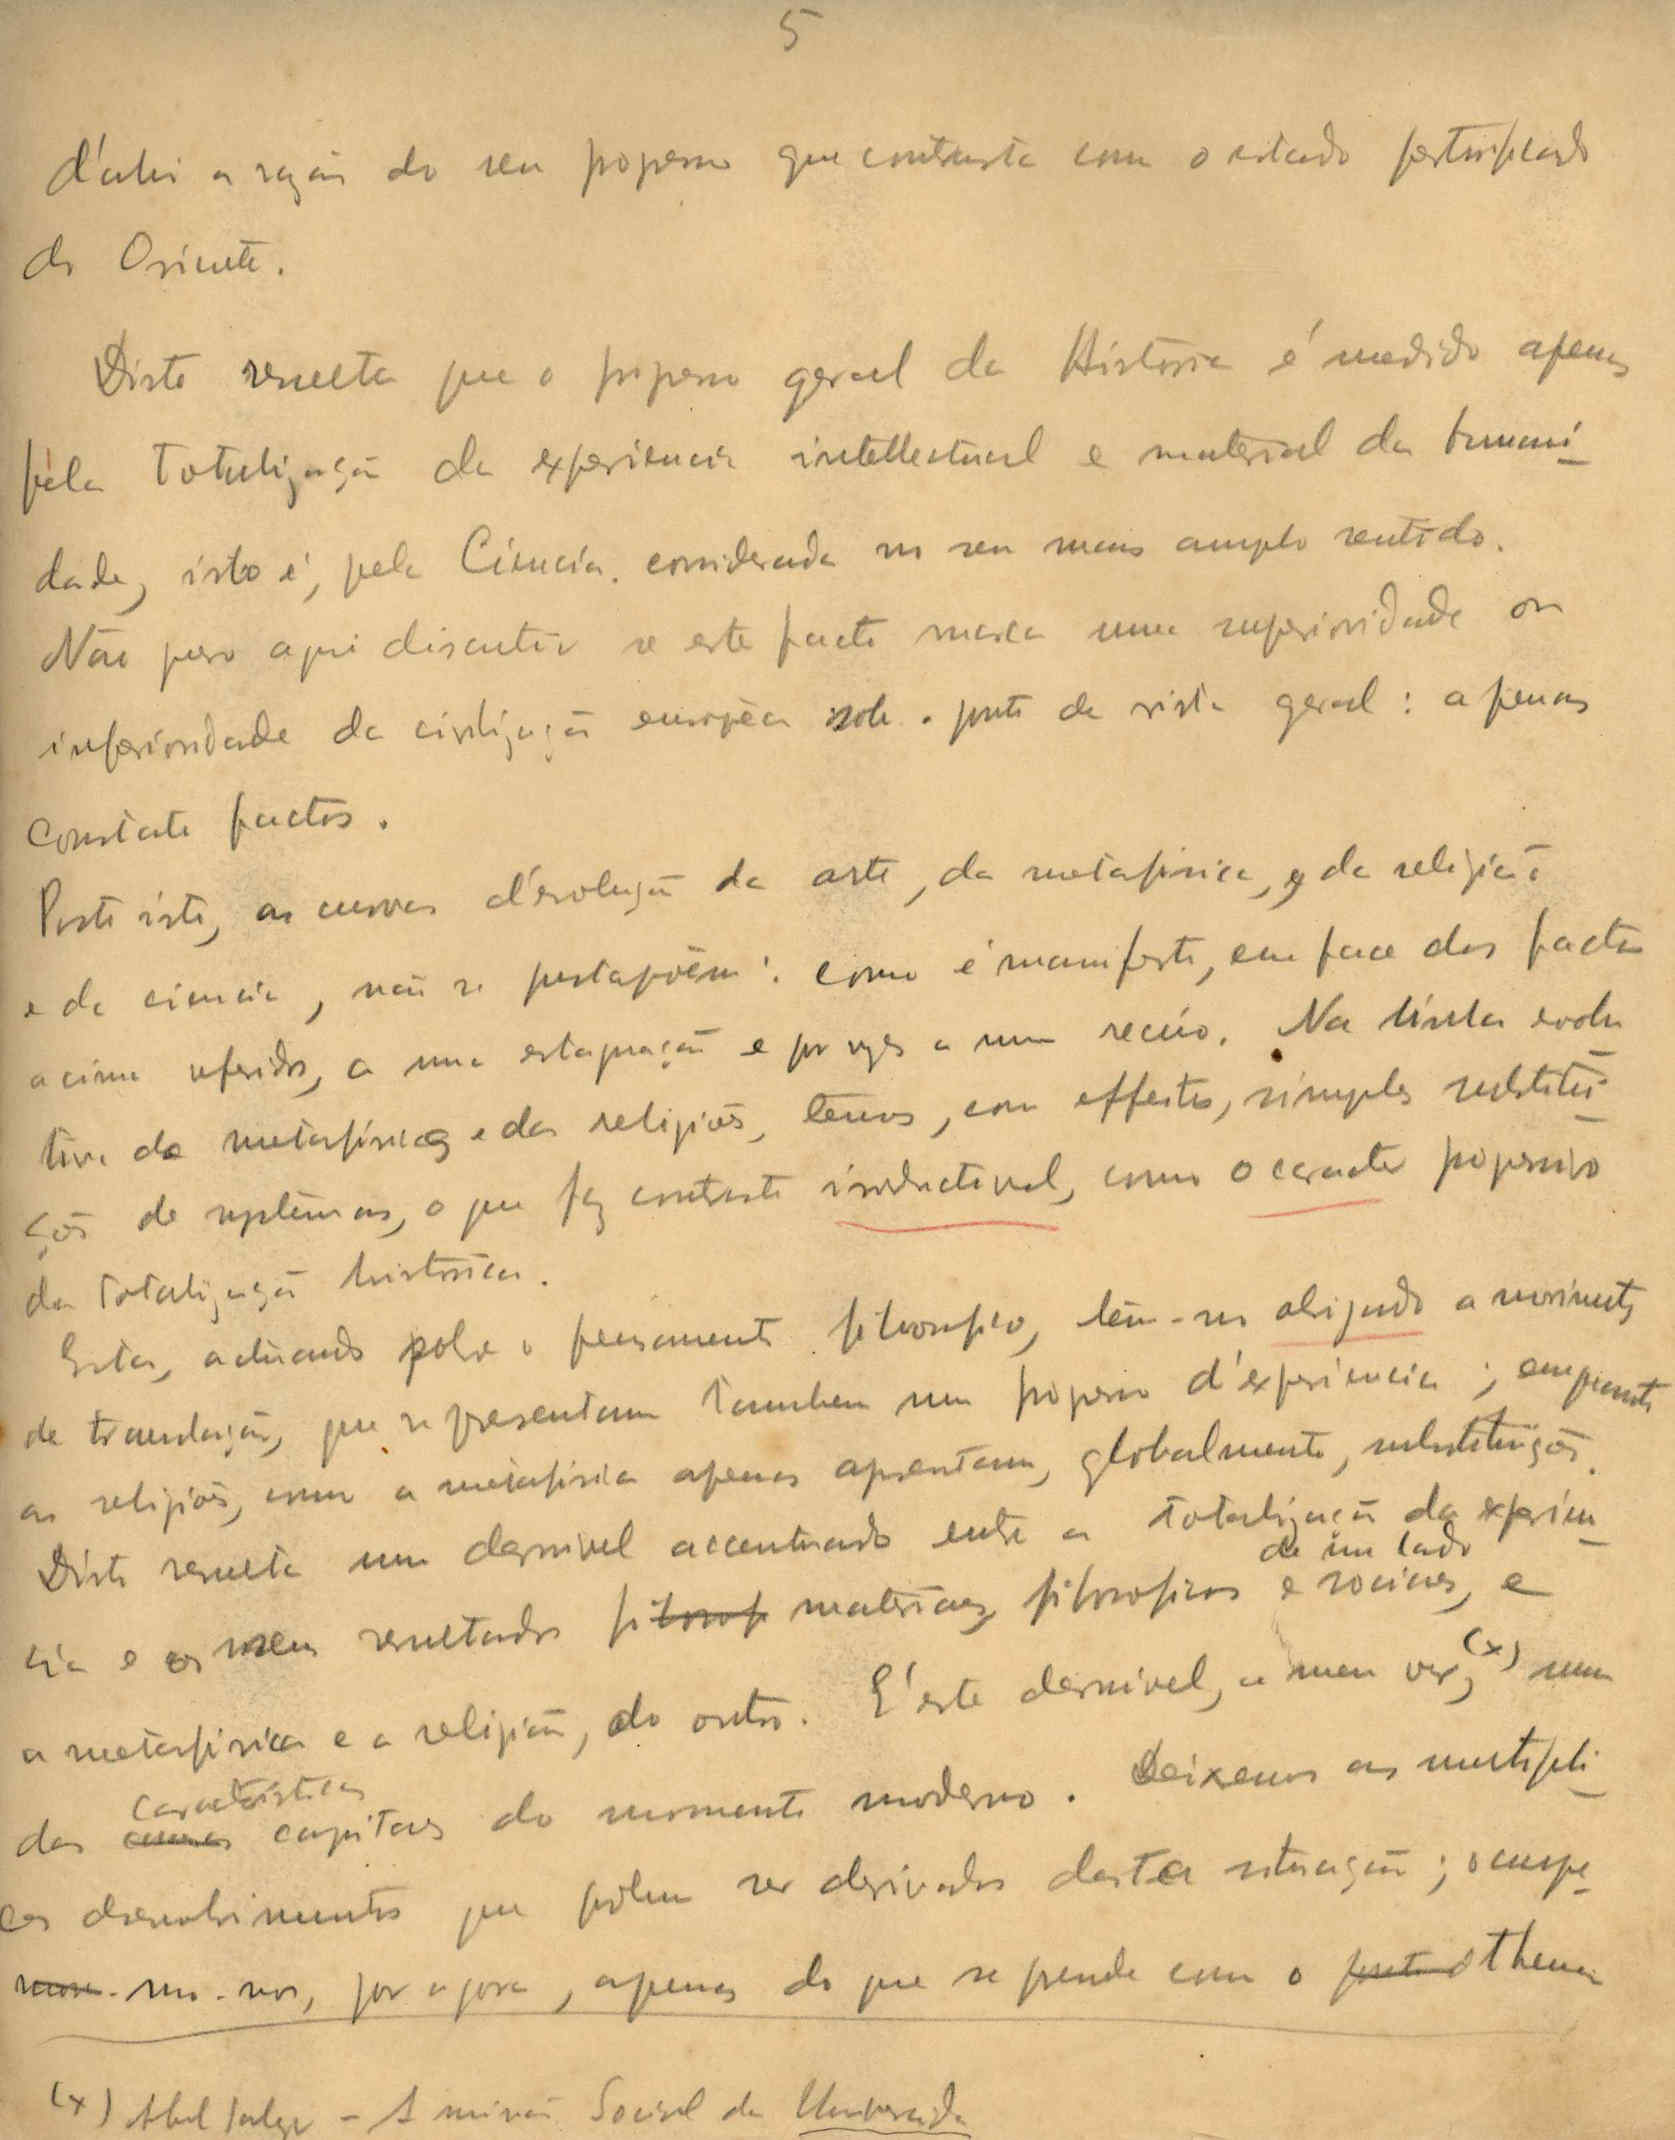 5
d'ahi a razão do seu progresso que contrasta com o estado petrificado
do Oriente.
Disto resulta que o progresso geral da História é medido apenas
pela totalização da experiencia intellectual e material da humani-
dade, isto é, pela Ciencia, considerada no seu mais amplo sentido.
Não quero aqui discutir se este facto marca uma superioridade ou
inferioridade da civilização européa sob o ponto de vista geral: apenas
constato factos.
Posto isto, as curvas d'evolução da arte, da metafisica, e da religião
e da ciencia, não se justapõem: como é manifesto, em face dos factos
acima referidos, a uma estagnação e por vezes a um recúo. Na linha evolu
tiva da metafísica e das religiões, temos, com effeito, simples substitui-
ções de systemas, o que faz contraste com o caracter progressivo
da totalização historica.
Esta, actuando sobre o pensamento filosofico, tem-no obrigado a movimentos
de translação, que representam tambem um progresso d'experiencia; emquanto
as religiões, como a metafísica apenas apresentam, globalmente, substituições.
Disto resulta um desnivel accentuado entre a totalização da experien-
de um lado
cia e os seus resultados filosof materiaes, filosoficos e sociaes, e
a metafisica e a religião, do outro. É este desnivel, a meu ver, (x) uma
caracteristicas
das capitaes do momento moderno. Deixemos as multipli-
ces desenvolvimentos que pódem ser derivados desta situação; occupe-
mo-nos, por agora, apenas do que se prende com o thema
(x) Abel Salazar - A missão Social da Universidade